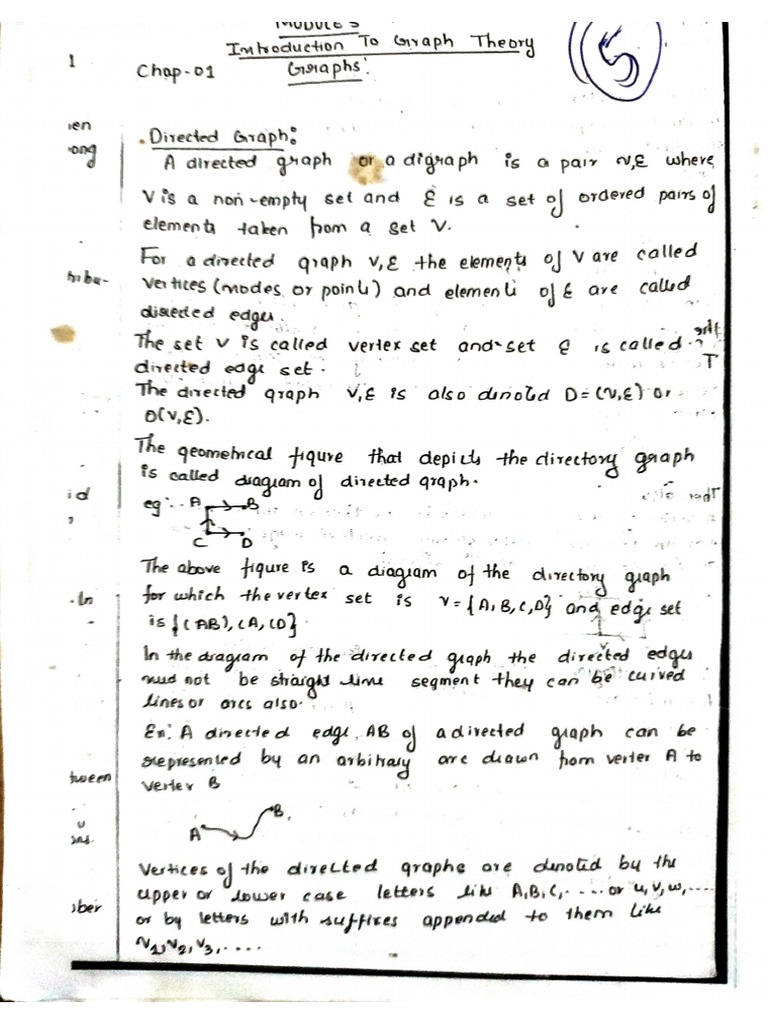 MODULE 5
Introduction To Graph Theory
1
Chap-01 Graphs:
5
ien
ong
Directed Graph:
A directed graph or a digraph is a pair V,E where
V is a non-empty set and E is a set of ordered pairs of
elements taken from a set V.
For a directed graph V,E the elements of V are called
vertices (modes or points) and elements of E are called
directed edges.
The set V is called vertex set and set E is called
directed edge set.
The directed graph V,E is also denoted D=(V,E) or
D(V,E).
The geometrical figure that depicts the directory graph
is called diagram of directed graph.
id
eg:- A B
C D
The above figure is a diagram of the directory graph
for which the vertex set is V={A,B,C,D} and edge set
is {(AB),(A,(D}
In the diagram of the directed graph the directed edges
need not be straight line segment they can be curved
lines or arcs also.
Ex: A directed edge AB of a directed graph can be
represented by an arbitrary arc drawn from vertex A to
tween
vertex B
A B.
Vertices of the directed graphs are denoted by the
upper or lower case letters like A,B,C,..... or u,v,w,....
mber
or by letters with suffixes appended to them like
v1,v2,v3,....